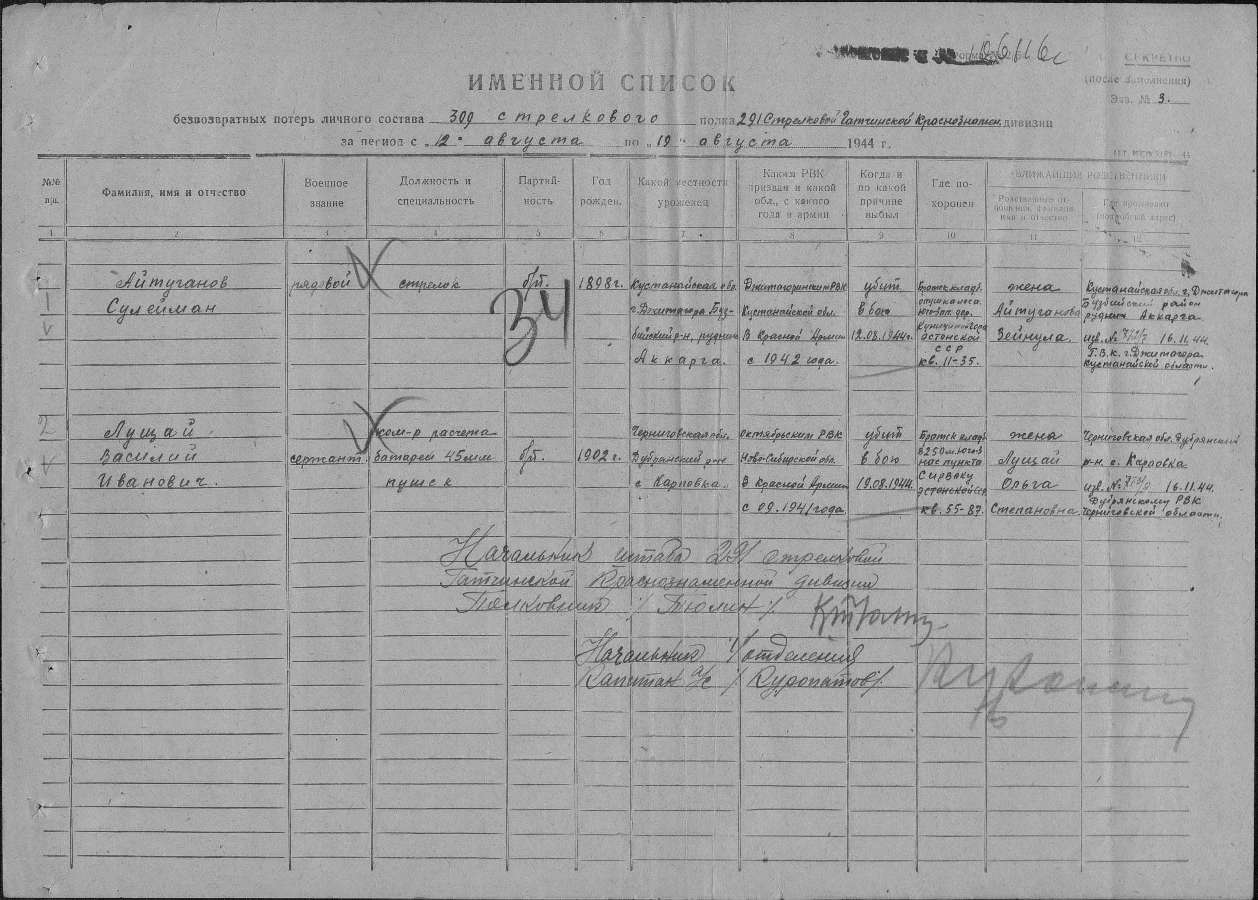 06116с
СЕКРЕТНО
(после заполнения)
Экз. № 3.
ИМЕННОЙ СПИСОК
безвозвратных потерь личного состава 309 стрелкового полка 291 Стрелковой Гатчинской Краснознамен. дивизии
за период с „12" августа по „19" августа 1944 г.
№№ п/п.
Фамилия, имя и отчество
Военное звание
Должность и специальность
Партий-ность
Год рожден.
Какой местности уроженец
Каким РВК призван и какой обл., с какого года в армии
Когда и по какой причине выбыл
Где по-хоронен
БЛИЖАЙШИЕ РОДСТВЕННИКИ
Родственные от-ношения, фамилия, имя и отчество
Где проживают (подробный адрес)
1 2 3 4 5 6 7 8 9 10 11 12
34
1
Айтуганов
Сулейман
рядовой
стрелок
б/п.
1898 г.
Кустанайская обл.
г. Джитагора Буз-
байский р-н, рудник
Аккарга.
Джитагоринским РВК
Кустанайской обл.
В Красной Армии
с 1942 года.
убит
в бою
12.08.1944г.
Братск. кладб.
опушка леса
юго-зап. дер.
эстонской
ССР
кв. 11-35.
жена
Айтуганова
Зейнула.
Кустанайская обл. г. Джитагора
Бузбийский район
рудник Аккарга
изв. № 16.11.44.
Г.В.К. г. Джитагора
Кустанайской области.
2
Лущай
Василий
Иванович.
сержант.
ком-р расчета
батареи 45мм
пушек
б/п.
1902 г.
Черниговская обл.
Дубрянский р-н
с. Карповка.
октябрьским РВК
Ново-Сибирской обл.
В Красной Армии
с 09.1941 года
убит
в бою
19.08.1944
Братск. кладб.
в 250 м. юго-в
нас. пункта
эстонской ССР.
кв. 55-87.
жена
Лущай
Ольга
Степановна.
Черниговская обл. Дубрянский
р-н. с. Карповка
изв. № 16.11.44.
Дубрянскому РВК
Черниговской области.
Начальник штаба 291 стрелковой
Гатчинской Краснознаменной дивизии
Полковник /Тюлин/.
Начальник 4 отделения
Капитан а/с /Куропатов/.